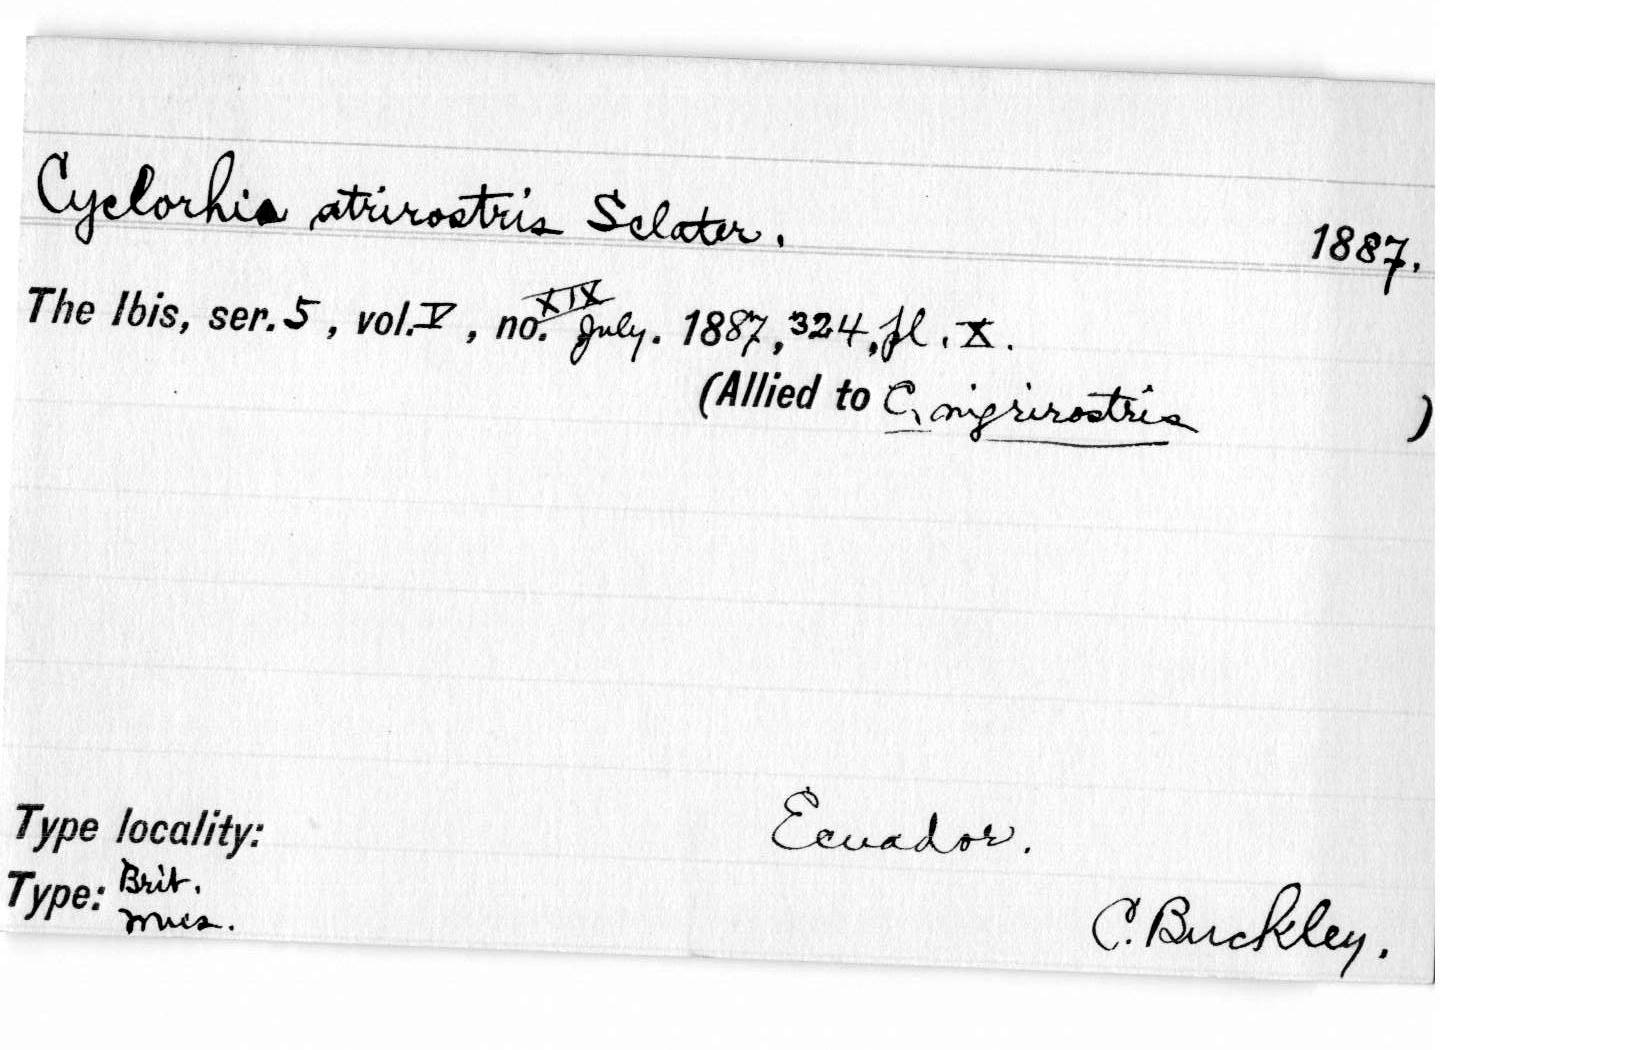 Cyclorhis atrirostris Sclater. 1887.
The Ibis, ser. 5, vol. V, no. XIX July. 1887, 324, pl. X.
(Allied to C. nigrirostris )
Type locality: Ecuador.
Type: Brit. Mus. C. Buckley.